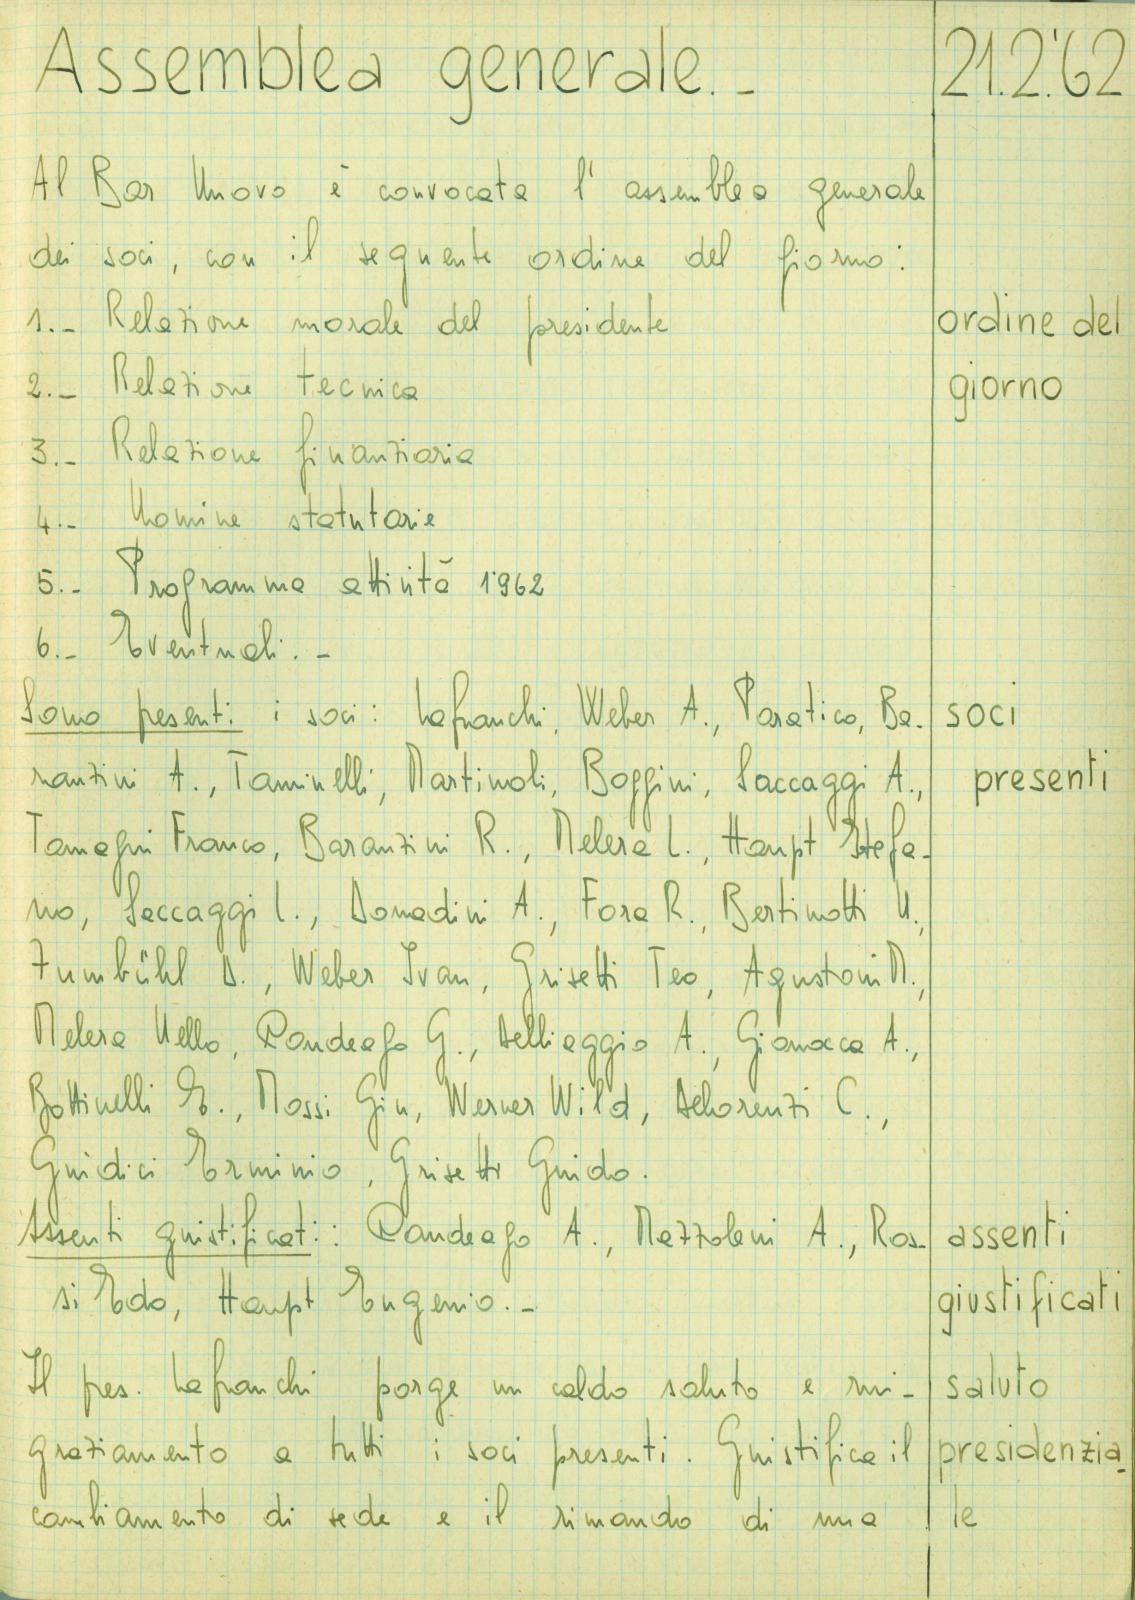 Assemblea generale. - 21.2.'62
Al Bar Nuovo è convocata l'assemblea generale
dei soci, con il seguente ordine del giorno:
1.- Relazione morale del presidente ordine del
2.- Relazione tecnica giorno
3.- Relazione finanziaria
4.- Nomine statutarie
5.- Programma attività 1962
6.- Eventuali. -
Sono presenti i soci: Lafranchi, Weber A., Paratico, Ba- soci
ranzini A., Taminelli, Martinoli, Boggini, Saccaggi A., presenti
Tamagni Franco, Baranzini R., Melera L., Haupt Stefa-
no, Saccaggi L., Domadini A., Fora R., Bertinotti N.,
Zumbühl D., Weber Ivan, Grisetti Teo, Agustoni M.,
Melera Nello, Pandeafo G., Delbiaggio A., Gianocca A.,
Bottinelli E., Mossi Gin, Werner Wild, Delorenzi C.,
Guidici Erminio, Grisetti Guido.
Assenti giustificati: Pandeafo A., Mazzoleni A., Ros- assenti
si Edo, Haupt Eugenio. - giustificati
Il pres. Lafranchi porge un caldo saluto e rin- saluto
graziamento a tutti i soci presenti. Giustifica il presidenzia-
cambiamento di sede e il rimando di una le